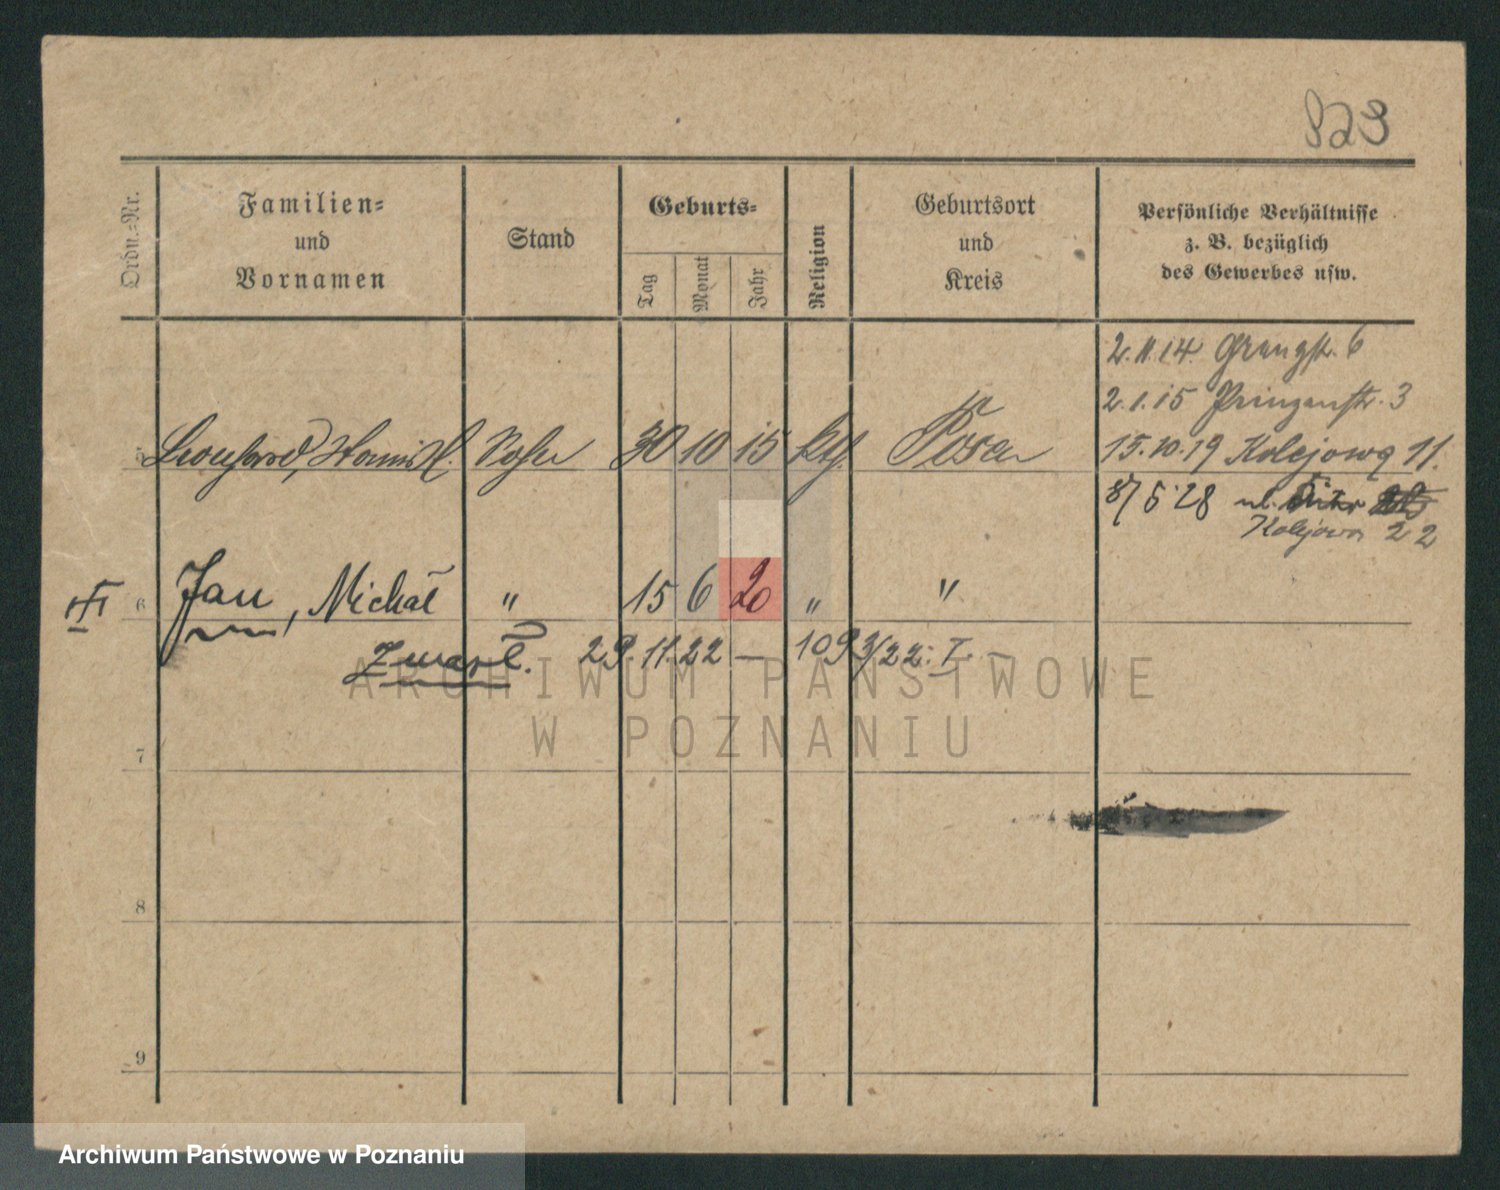 823
Ordn.-Nr.
Familien-
und
Vornamen
Stand
Geburts-
Tag
Monat
Jahr
Religion
Geburtsort
und
Kreis
Persönliche Verhältnisse
z. B. bezüglich
des Gewerbes usw.
2.11.14. Grenzstr. 6
2.1.15 Prinzenstr. 3
5 Leonhard, Stanisl. Sohn 30 10 15 kth. Posen
15.10.19 Kolejowa 11.
8/5 28 ul.
Kolejowa 22
6 Jan, Michał " 15 6 20 " "
Zmarł. 29.11.22 — 1093/22. I. —
7
8
9
ARCHIWUM PAŃSTWOWE
W POZNANIU
Archiwum Państwowe w Poznaniu